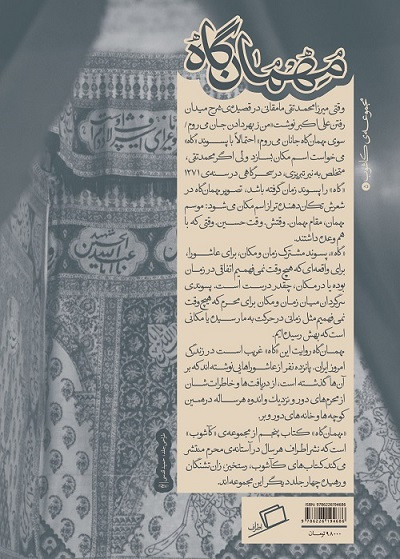 مهمان‌گاه
مجموعه‌ی کآشوب ۵
وقتی میرزا محمدتقی مامقانی در قصیده‌ی شرح میدان
رفتن علی‌اکبر نوشت «من ز بهر دادن جان می‌روم /
سوی مهمان‌گاه جانان می‌روم» احتمالاً با پسوند «گاه»
می‌خواست اسم مکان بسازد ولی اگر محمدتقی،
متخلص به نیر تبریزی، در سحرگاهی در سنه‌ی ۱۲۷۱
«گاه» را پسوند زمان گرفته باشد، تصویر مهمان‌گاه در
شعرش تکان‌دهنده‌تر از اسم مکان می‌شود: موسم
مهمان، مقام مهمان، وقتش، وقت حسین، وقتی که با
هم وعده داشتند.
«گاه»، پسوند مشترک زمان و مکان، برای عاشورا،
برای واقعه‌ای که هیچ وقت نمی‌فهمیم اتفاقی در زمان
بوده یا در مکان، چقدر درست است. پسوندی
سرگردان میان زمان و مکان برای محرم که هیچ وقت
نمی‌فهمیم مثل زمانی در حرکت به ما رسیده یا مکانی
است که بهش رسیده‌ایم.
مهمان‌گاه روایت این «گاه» غریب است در زندگی
امروز ایران. پانزده نفر از عاشوراهایی نوشته‌اند که بر
آن‌ها گذشته است، از دریافت‌ها و خاطرات‌شان
از محرم‌های دور و نزدیک و اندوه هرساله در همین
کوچه‌ها و خانه‌های دور و بر.
«مهمان‌گاه» کتاب پنجم از مجموعه‌ی «کآشوب»
است که نشر اطراف هر سال در آستانه‌ی محرم منتشر
می‌کند. کتاب‌های کآشوب، رستخیز، زان تشنگان
و رهیده چهار جلد دیگر این مجموعه‌اند.
ISBN: 9786226194686
9 786226 194686
۹۸۰۰۰ تومان
اطراف